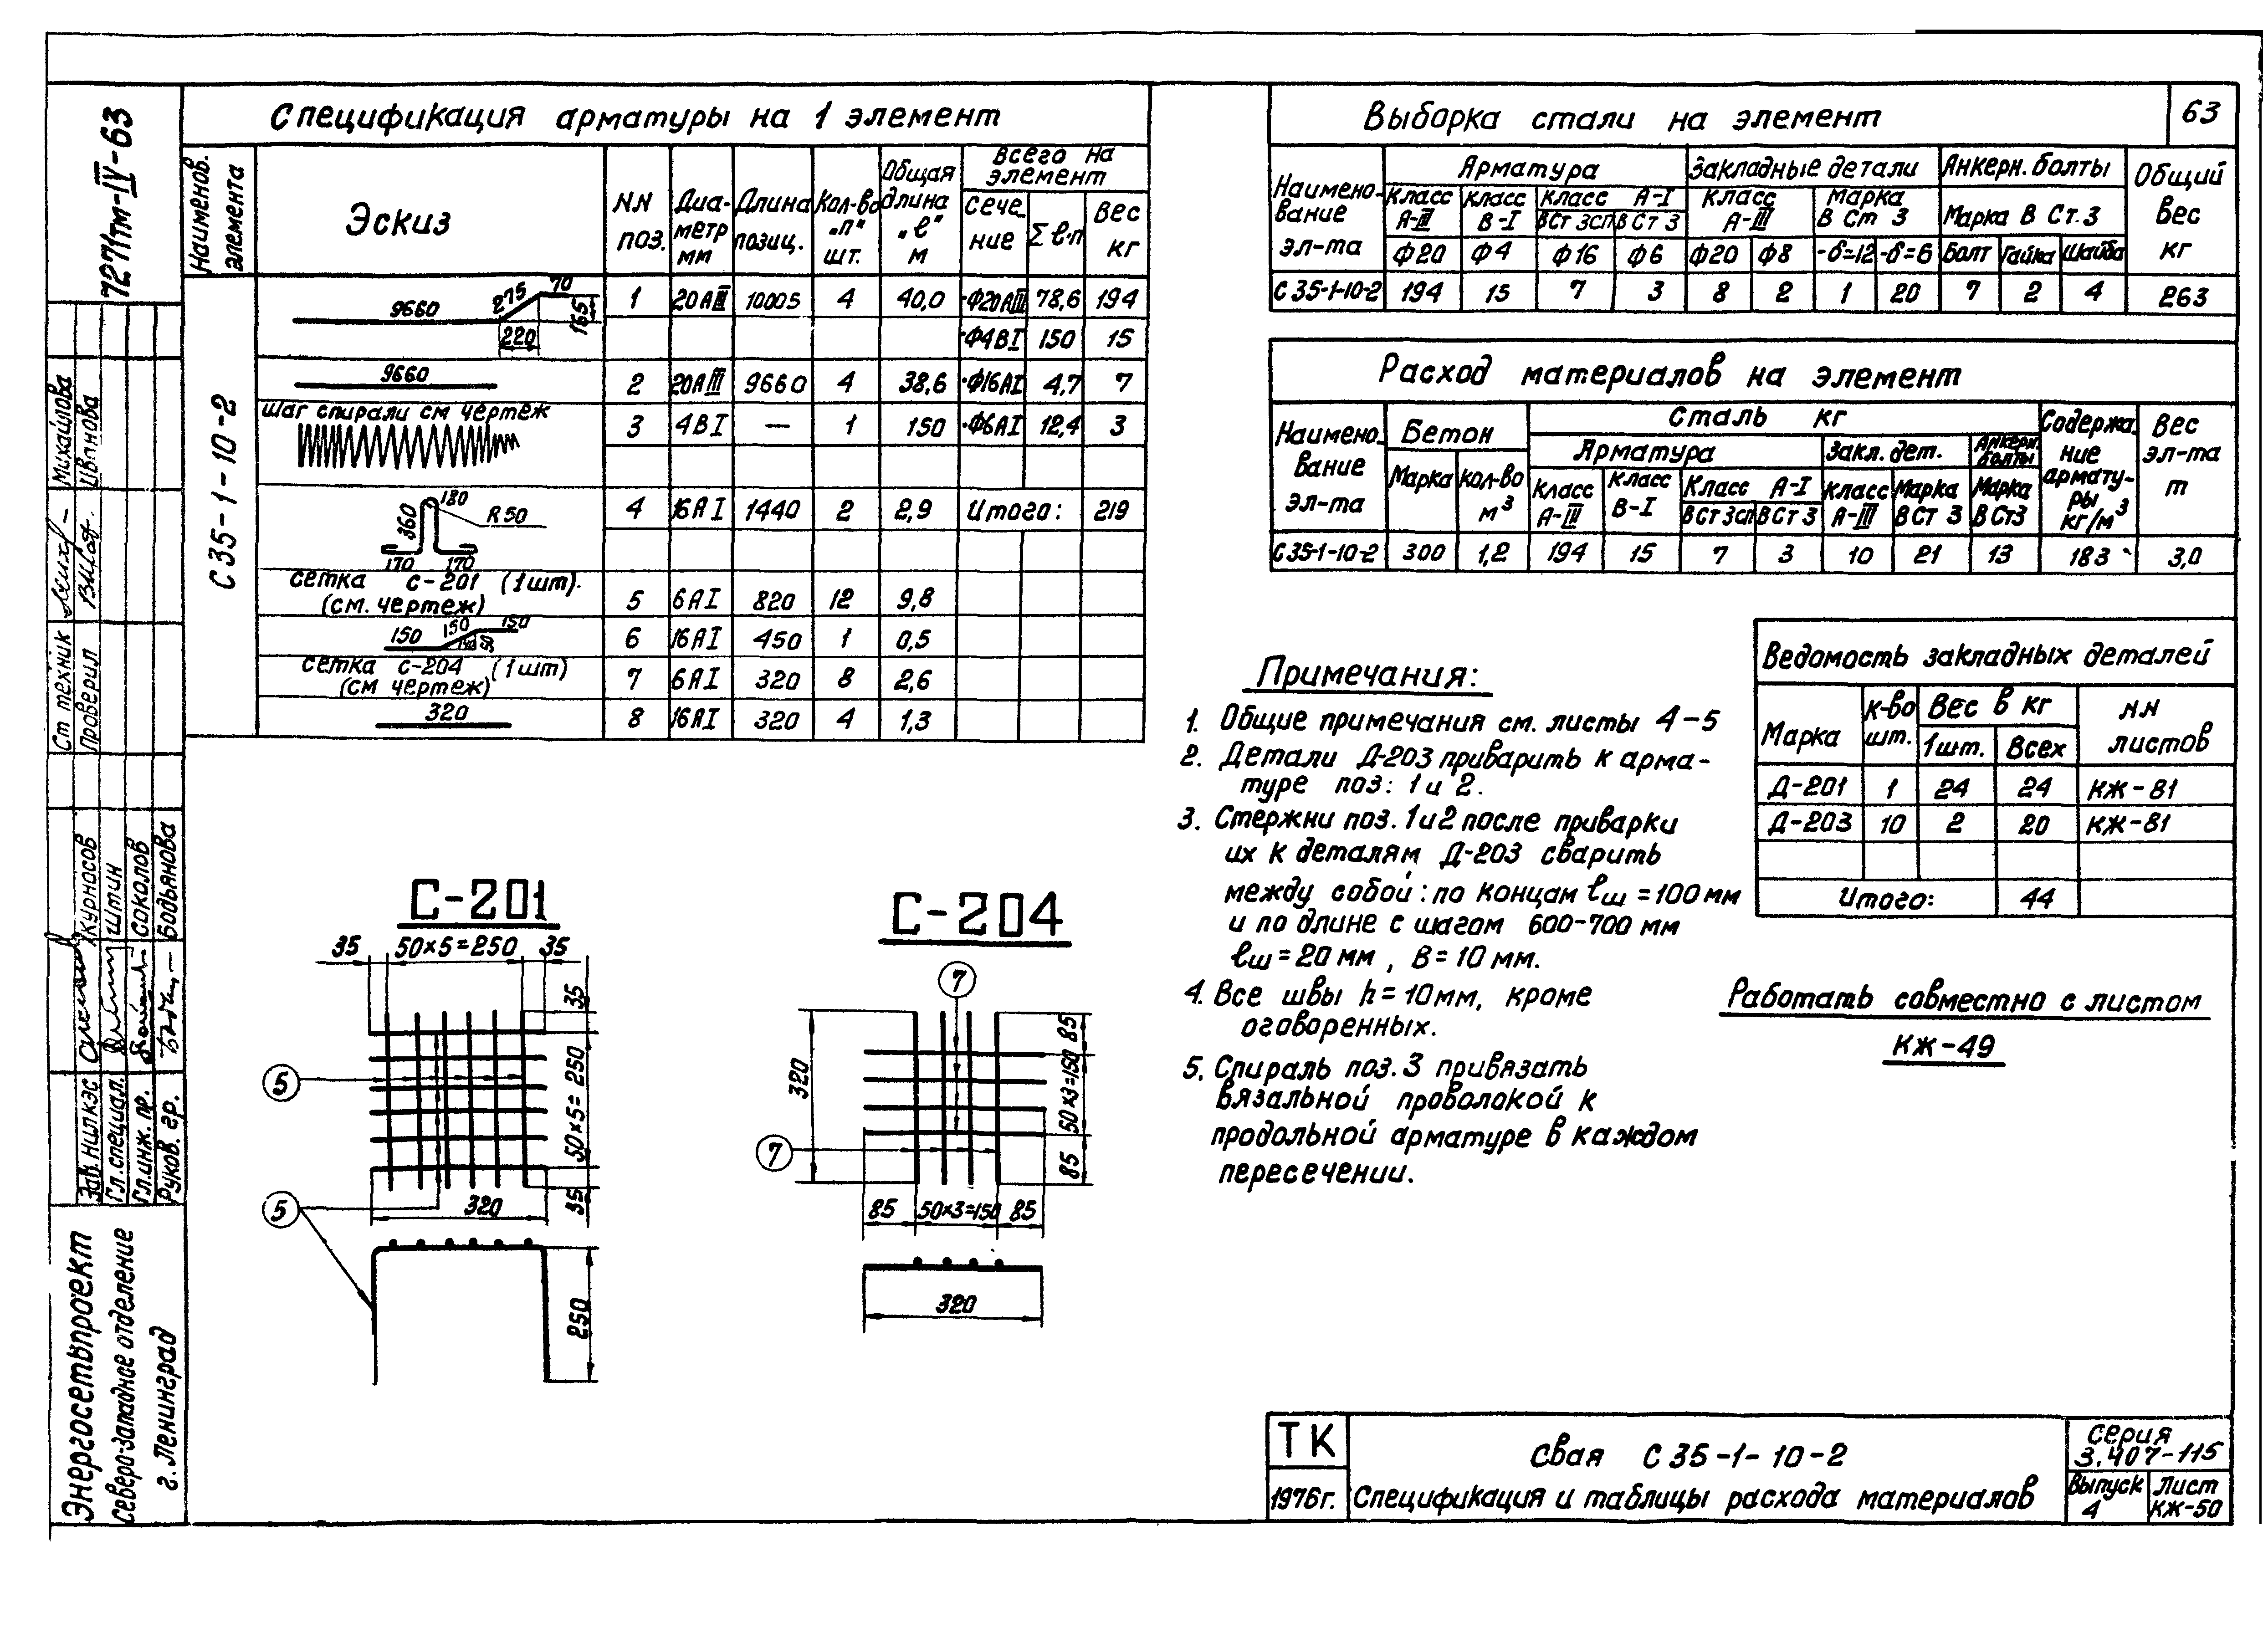 63
7271тм-IV-63
Спецификация арматуры на 1 элемент
Наименов. элемента | Эскиз | NN поз. | Диаметр мм | Длина позиц. | Кол-во „n" шт. | Общая длина „ℓ" м | Всего на элемент
Сечение | Σℓ·n | Вес кг
С35-1-10-2
9660 275 70 165 220 | 1 | 20АIII | 10005 | 4 | 40,0 | ·Ф20АIII | 78,6 | 194
·Ф4ВI | 150 | 15
9660 | 2 | 20АIII | 9660 | 4 | 38,6 | ·Ф16АI | 4,7 | 7
шаг спирали см чертеж | 3 | 4ВI | — | 1 | 150 | ·Ф6АI | 12,4 | 3
360 180 R50 170 170 | 4 | 16АI | 1440 | 2 | 2,9 | Итого: | 219
сетка С-201 (1шт).
(см. чертеж) | 5 | 6АI | 820 | 12 | 9,8
150 150 150 | 6 | 16АI | 450 | 1 | 0,5
сетка С-204 (1шт)
(см чертеж) | 7 | 6АI | 320 | 8 | 2,6
320 | 8 | 16АI | 320 | 4 | 1,3
Выборка стали на элемент
Наименование эл-та | Арматура | Закладные детали | Анкерн. болты | Общий вес кг
Класс А-III | Класс В-I | Класс А-I | Класс А-III | Марка В Ст 3 | Марка В Ст.3
ВСт 3сп | В Ст 3
Ф20 | Ф4 | Ф16 | Ф6 | Ф20 | Ф8 | -δ=12 | -δ=6 | Болт | Гайка | Шайба
С35-1-10-2 | 194 | 15 | 7 | 3 | 8 | 2 | 1 | 20 | 7 | 2 | 4 | 263
Расход материалов на элемент
Наименование эл-та | Бетон | Сталь кг | Содержание арматуры кг/м³ | Вес эл-та т
Марка | Кол-во м³ | Арматура | Закл. дет. | Анкерн. болты
Класс А-III | Класс В-I | Класс А-I | Класс А-III | Марка ВСт 3 | Марка ВСт3
ВСт 3сп | ВСт 3
С35-1-10-2 | 300 | 1,2 | 194 | 15 | 7 | 3 | 10 | 21 | 13 | 183 | 3,0
Ведомость закладных деталей
Марка | К-во шт. | Вес в кг | NN листов
1шт. | Всех
Д-201 | 1 | 24 | 24 | КЖ-81
Д-203 | 10 | 2 | 20 | КЖ-81
Итого: | 44
Примечания:
1. Общие примечания см. листы 4-5
2. Детали Д-203 приварить к арма-
туре поз: 1 и 2.
3. Стержни поз. 1 и 2 после приварки
их к деталям Д-203 сварить
между собой: по концам ℓш = 100 мм
и по длине с шагом 600-700 мм
ℓш = 20 мм, В = 10 мм.
4. Все швы h = 10 мм, кроме
оговоренных.
5. Спираль поз. 3 привязать
вязальной проволокой к
продольной арматуре в каждом
пересечении.
Работать совместно с листом
КЖ-49
С-201
35 50×5=250 35
35
50×5=250
35
5
5
320
250
С-204
7
7
320
85
50×3=150
85
85 50×3=150 85
320
Ст техник Михайлова
Проверил Иванова
Зав. НИЛКЭС Курносов
Гл. специал. Штин
Гл. инж. пр. Соколов
Руков. гр. Бодьянова
Энергосетьпроект
Северо-западное отделение
г. Ленинград
ТК
1976г.
Свая С35-1-10-2
Спецификация и таблицы расхода материалов
Серия
3.407-115
Выпуск
4
Лист
КЖ-50